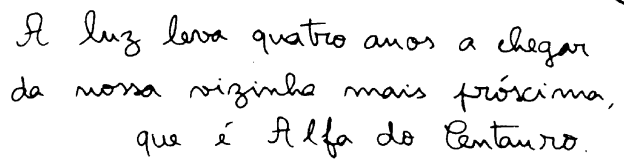 A luz leva quatro anos a chegar
da nossa vizinha mais próxima,
que é Alfa do Centauro.